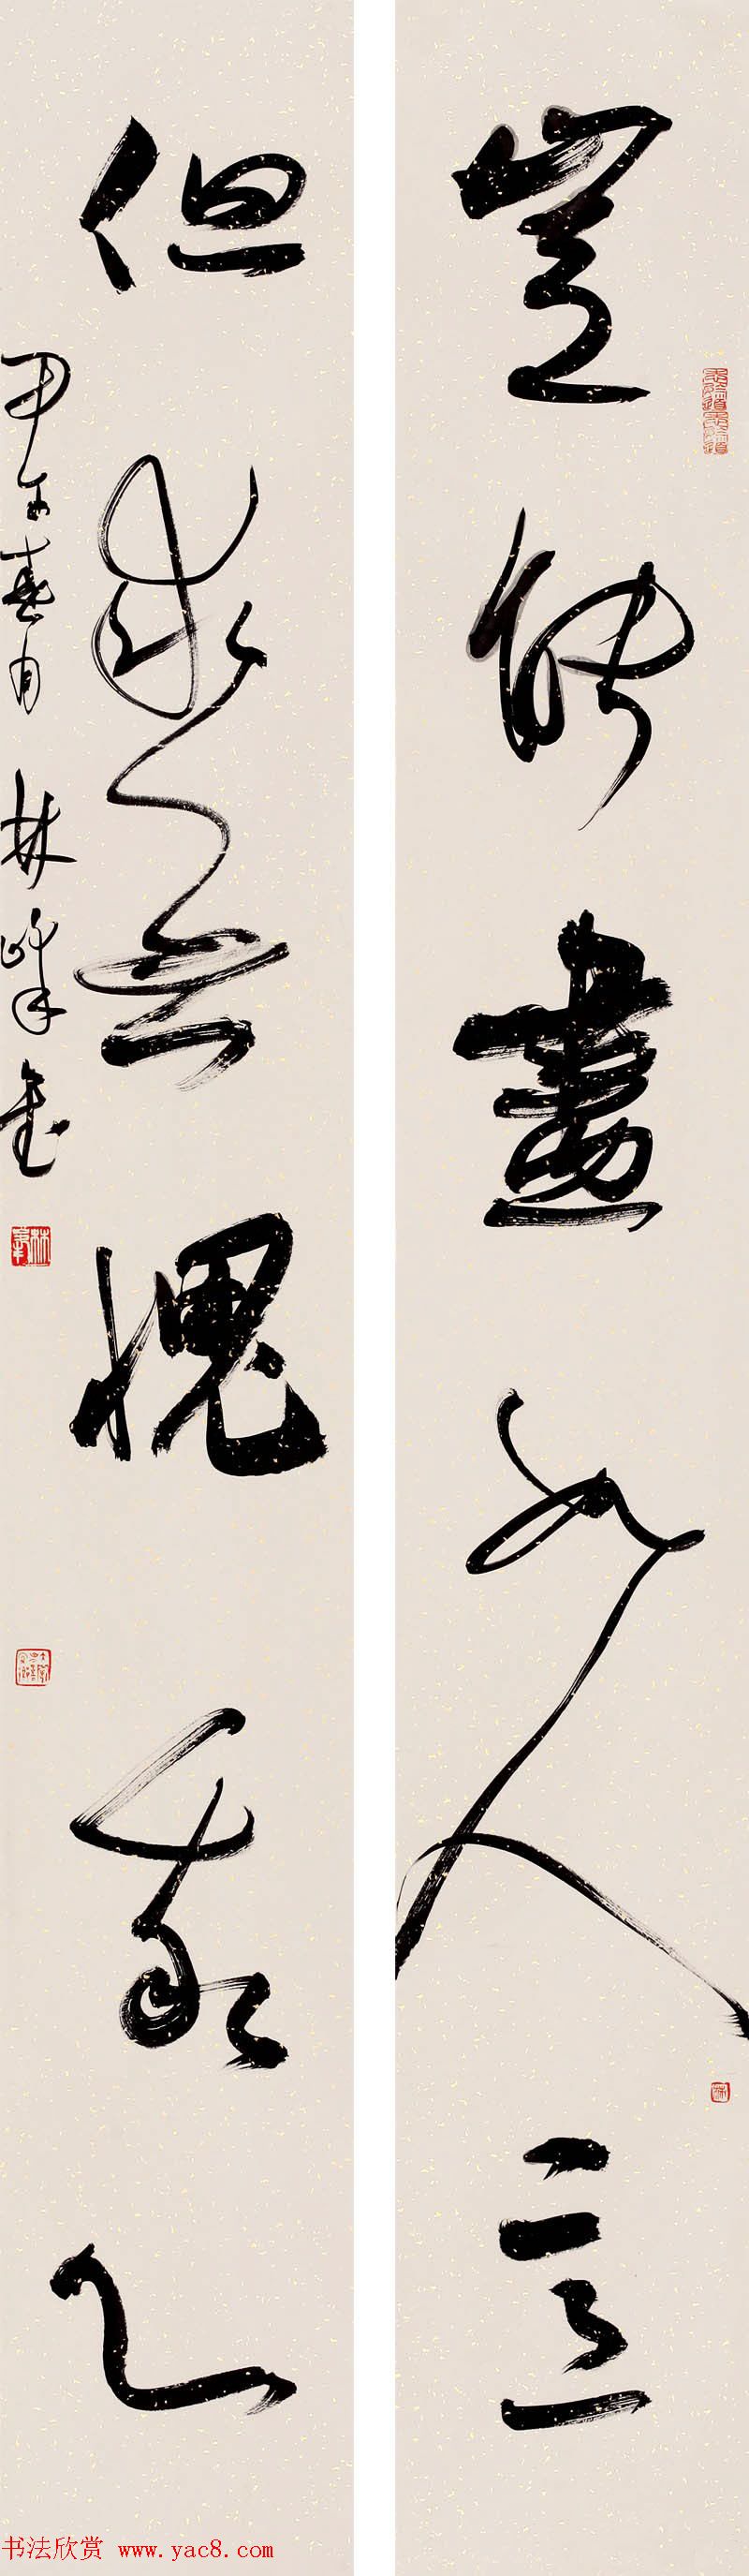 豈能盡如人意
但求無愧我心
甲午春月 林峰
书法欣赏 www.yac8.com